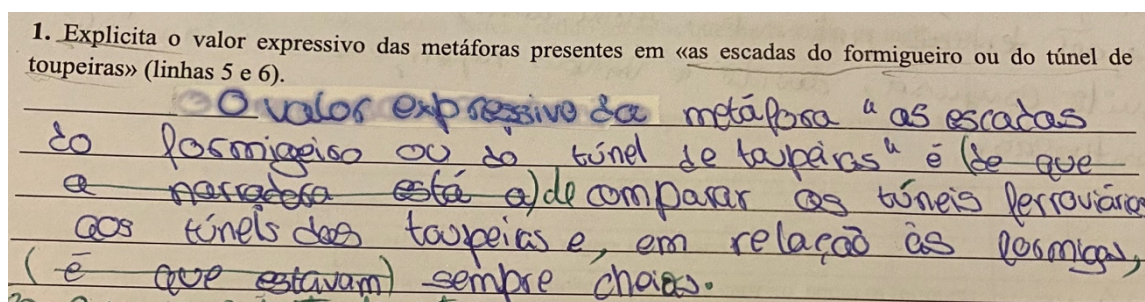 1. Explicita o valor expressivo das metáforas presentes em «as escadas do formigueiro ou do túnel de
toupeiras» (linhas 5 e 6).
O valor expressivo da metáfora " as escadas
do formigeiro ou do túnel de taupeiras" é (de que
a narradora está a) de comparar os túneis ferroviários
aos túneis das toupeiras e, em relação às formigas,
(é que estavam) sempre cheios.